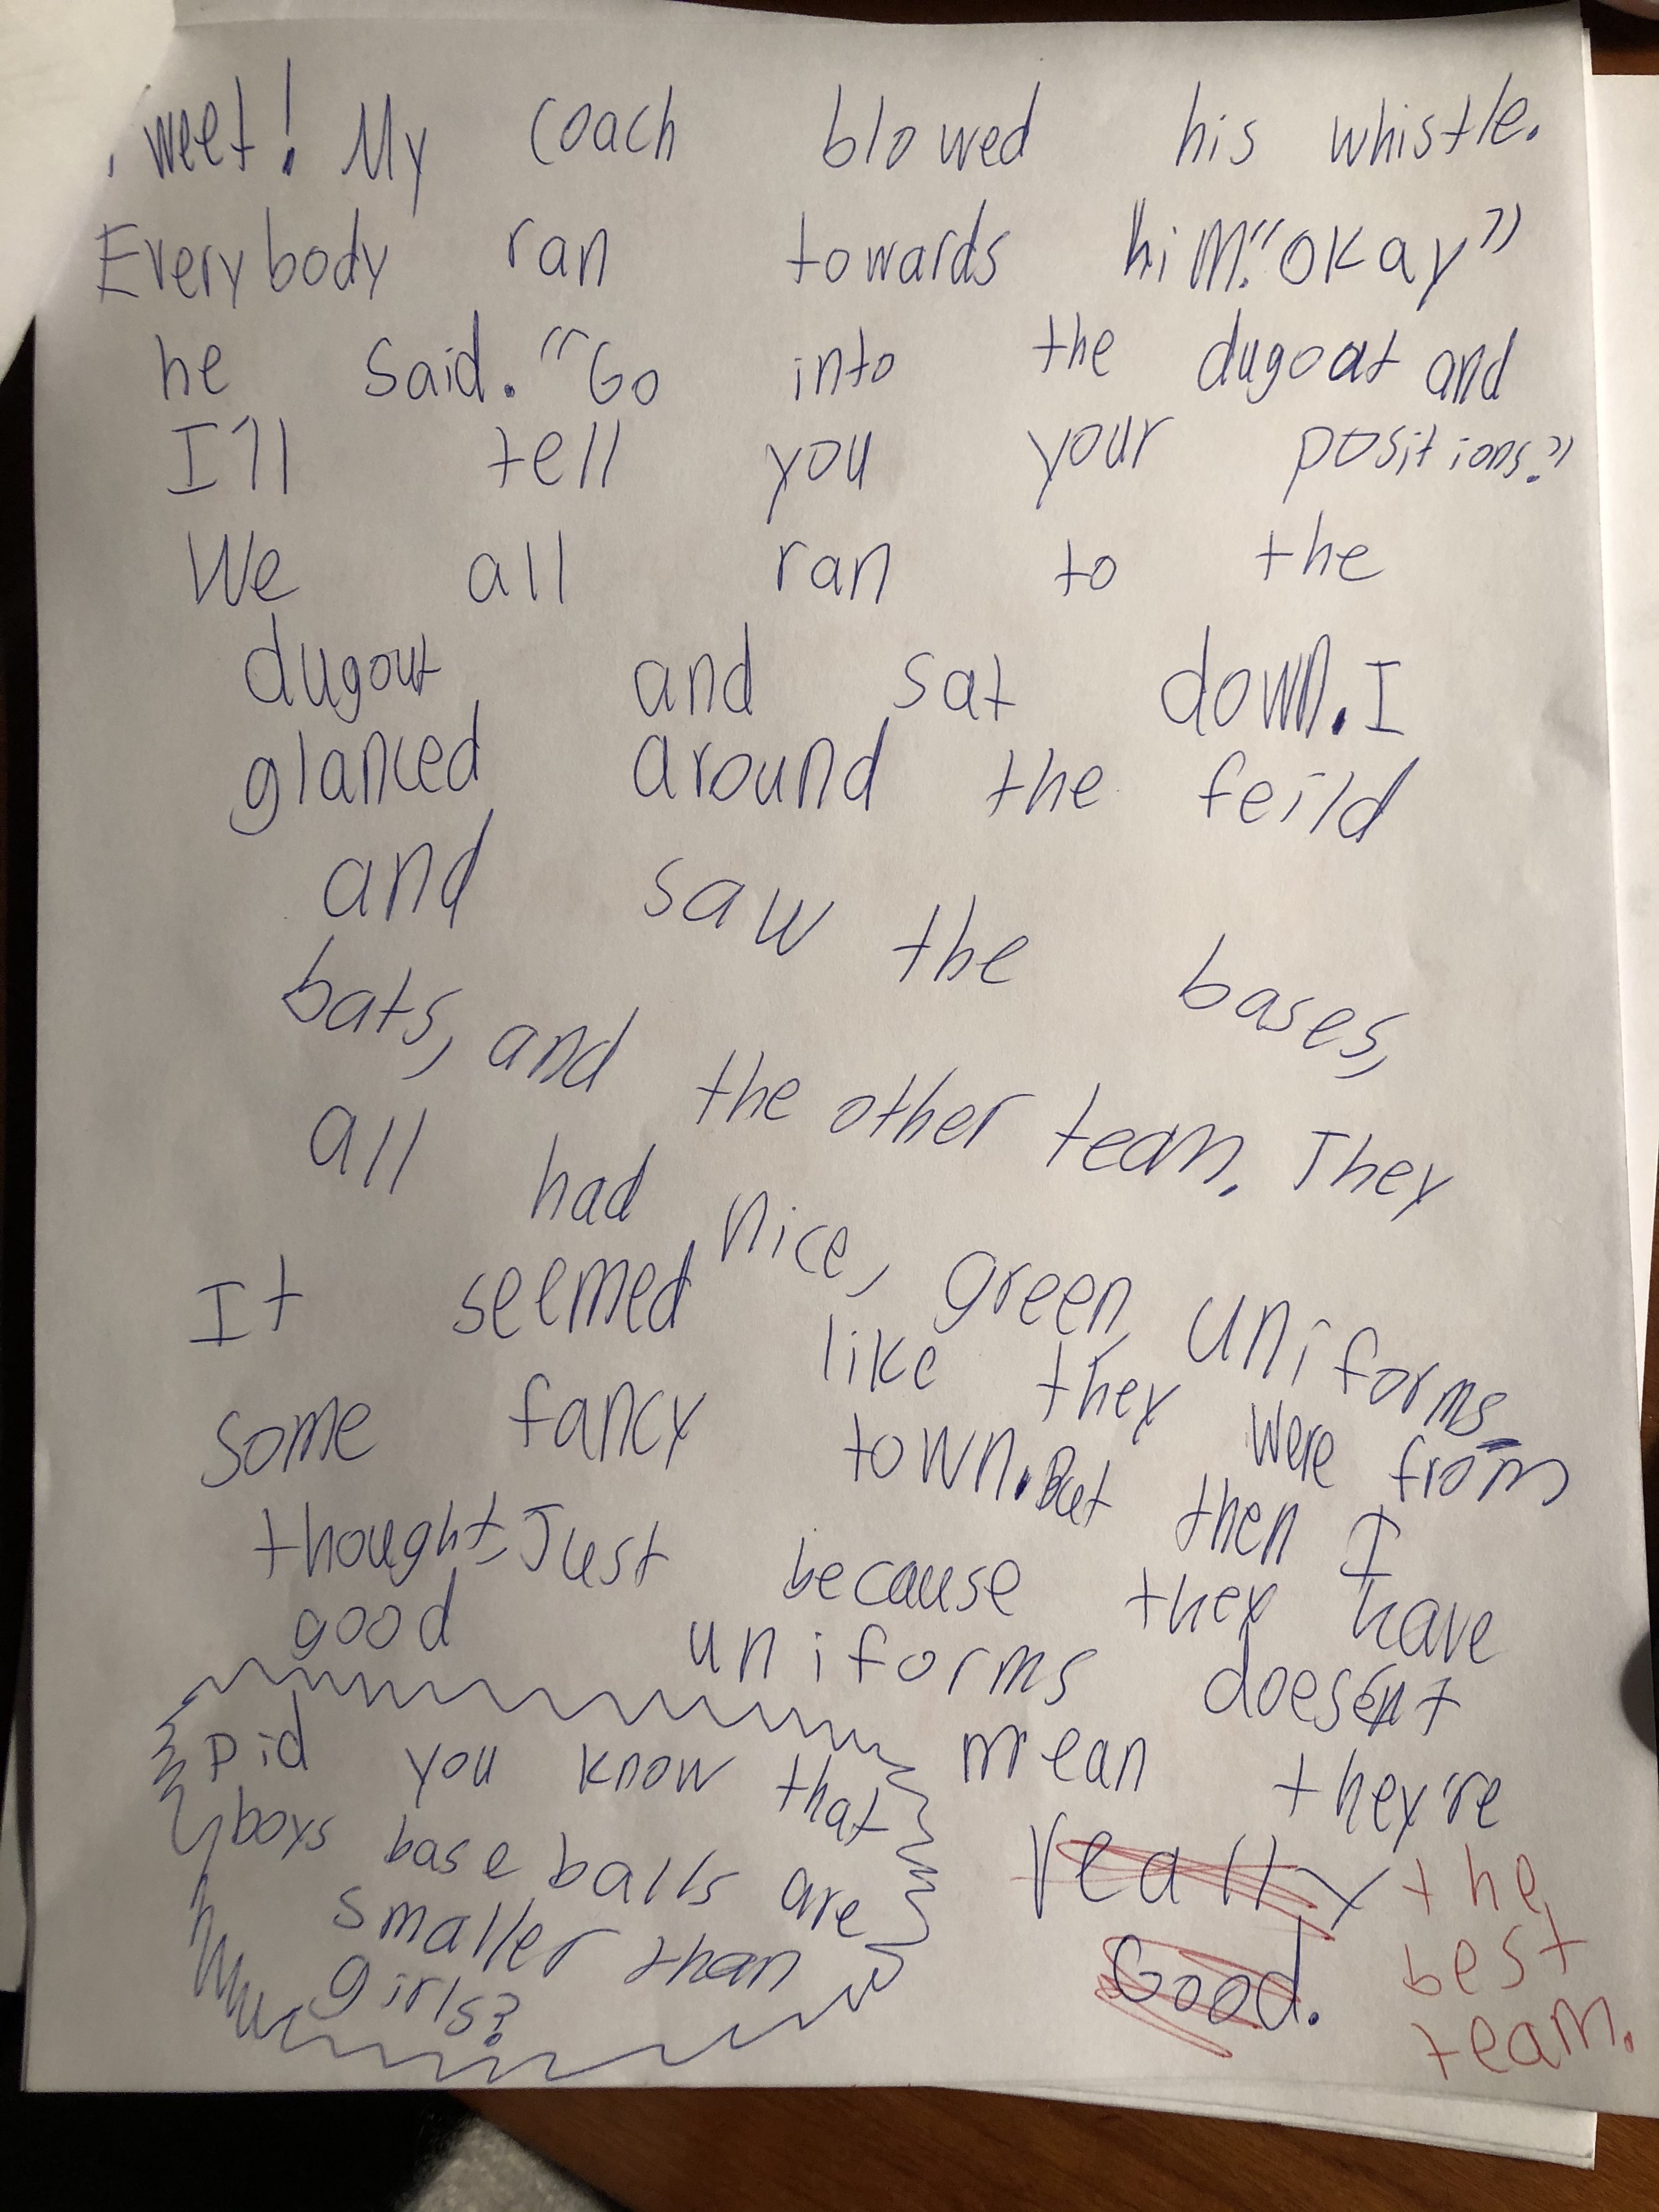 weet! My coach blowed his whistle.
Everybody ran towards him. "okay"
he said. "Go into the dugoat and
I'll tell you your positions."
We all ran to the
dugout and sat down. I
glanced around the feild
and saw the bases,
bats, and the other team. They
all had nice, green uniforms.
It seemed like they were from
some fancy town. But then I
thought, Just because they have
good uniforms doesent
mean they're
really the
Good. best
team.
Did you know that
boys base balls are
smaller than
girls?